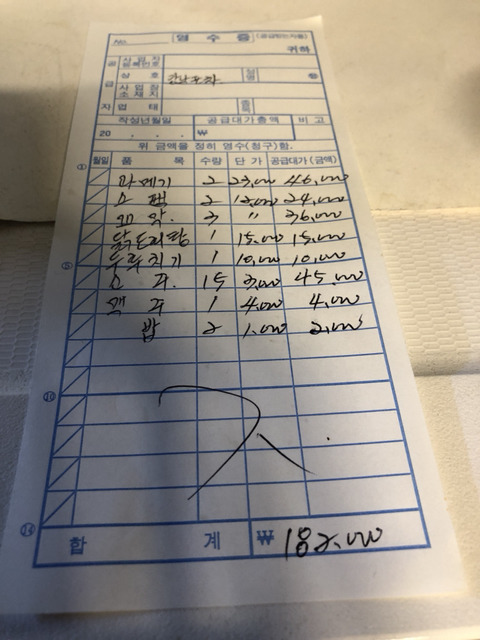 No. 영 수 증 (공급받는자용)
귀하
공 급 자
사 업 자 등록번호
상 호 강남포차 성명 ㊞
사 업 장 소 재 지
업 태 종목
작성년월일 공급대가총액 비 고
20 . . . ₩
위 금액을 정히 영수(청구)함.
월일 품 목 수량 단 가 공급대가(금액)
① 과메기 2 23,000 46,000
2 12,000 24,000
꼬막. 3 〃 36,000
닭도리탕 1 15,000 15,000
⑤ 두루치기 1 10,000 10,000
소 주 15 3,000 45,000
맥 주 1 4,000 4,000
밥 2 1,000 2,000
⑩
⑭
합 계 ₩ 182,000